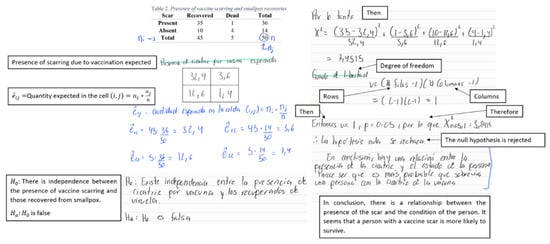 Table 2. Presence of vaccine scarring and smallpox recoveries
Scar Recovered Dead Total
Present 35 1 36
Absent 10 4 14
Total 45 5 50
Presence of scarring due to vaccination expected
32,4 3,6
12,6 1,4
êij =Quantity expected in the cell (i, j) = ni * nj/n
êij = Cantidad esperada en la celda (i,j) = ni · nj/n
ê11 = 45·36/50 = 32,4
ê21 = 45·14/50 =
ê12 = 5·36/50 =
ê22 = 5·14/50 = 1,4
H0: There is independence
between the presence of
vaccine scarring and those
recovered from smallpox.
Ha: H0 is false
H0: Existe independencia entre la presencia de
cicatriz por vacuna y los recuperados de
viruela.
Ha: H0 es falsa
Por lo tanto
Then
X² = (35-32,4)²/32,4 + (1-3,6)²/3,6 + (10-12,6)²/12,6 + (4-1,4)²/1,4
Grado de libertad
Degree of freedom
v = (# filas -1)(# columnas -1)
Rows
Columns
= (2-1)(2-1) = 1
Then
Therefore
Entonces v= 1, p=0.05, por lo que
∴ la hipótesis nula se rechaza
The null hypothesis is rejected
En conclusión, hay una relación entre la
presencia de la cicatriz y el estado de la persona
Parece ser que es más probable que sobreviva
una persona con la cicatriz de la vacuna
In conclusion, there is a relationship between the
presence of the scar and the condition of the person. It
seems that a person with a vaccine scar is more likely to
survive.